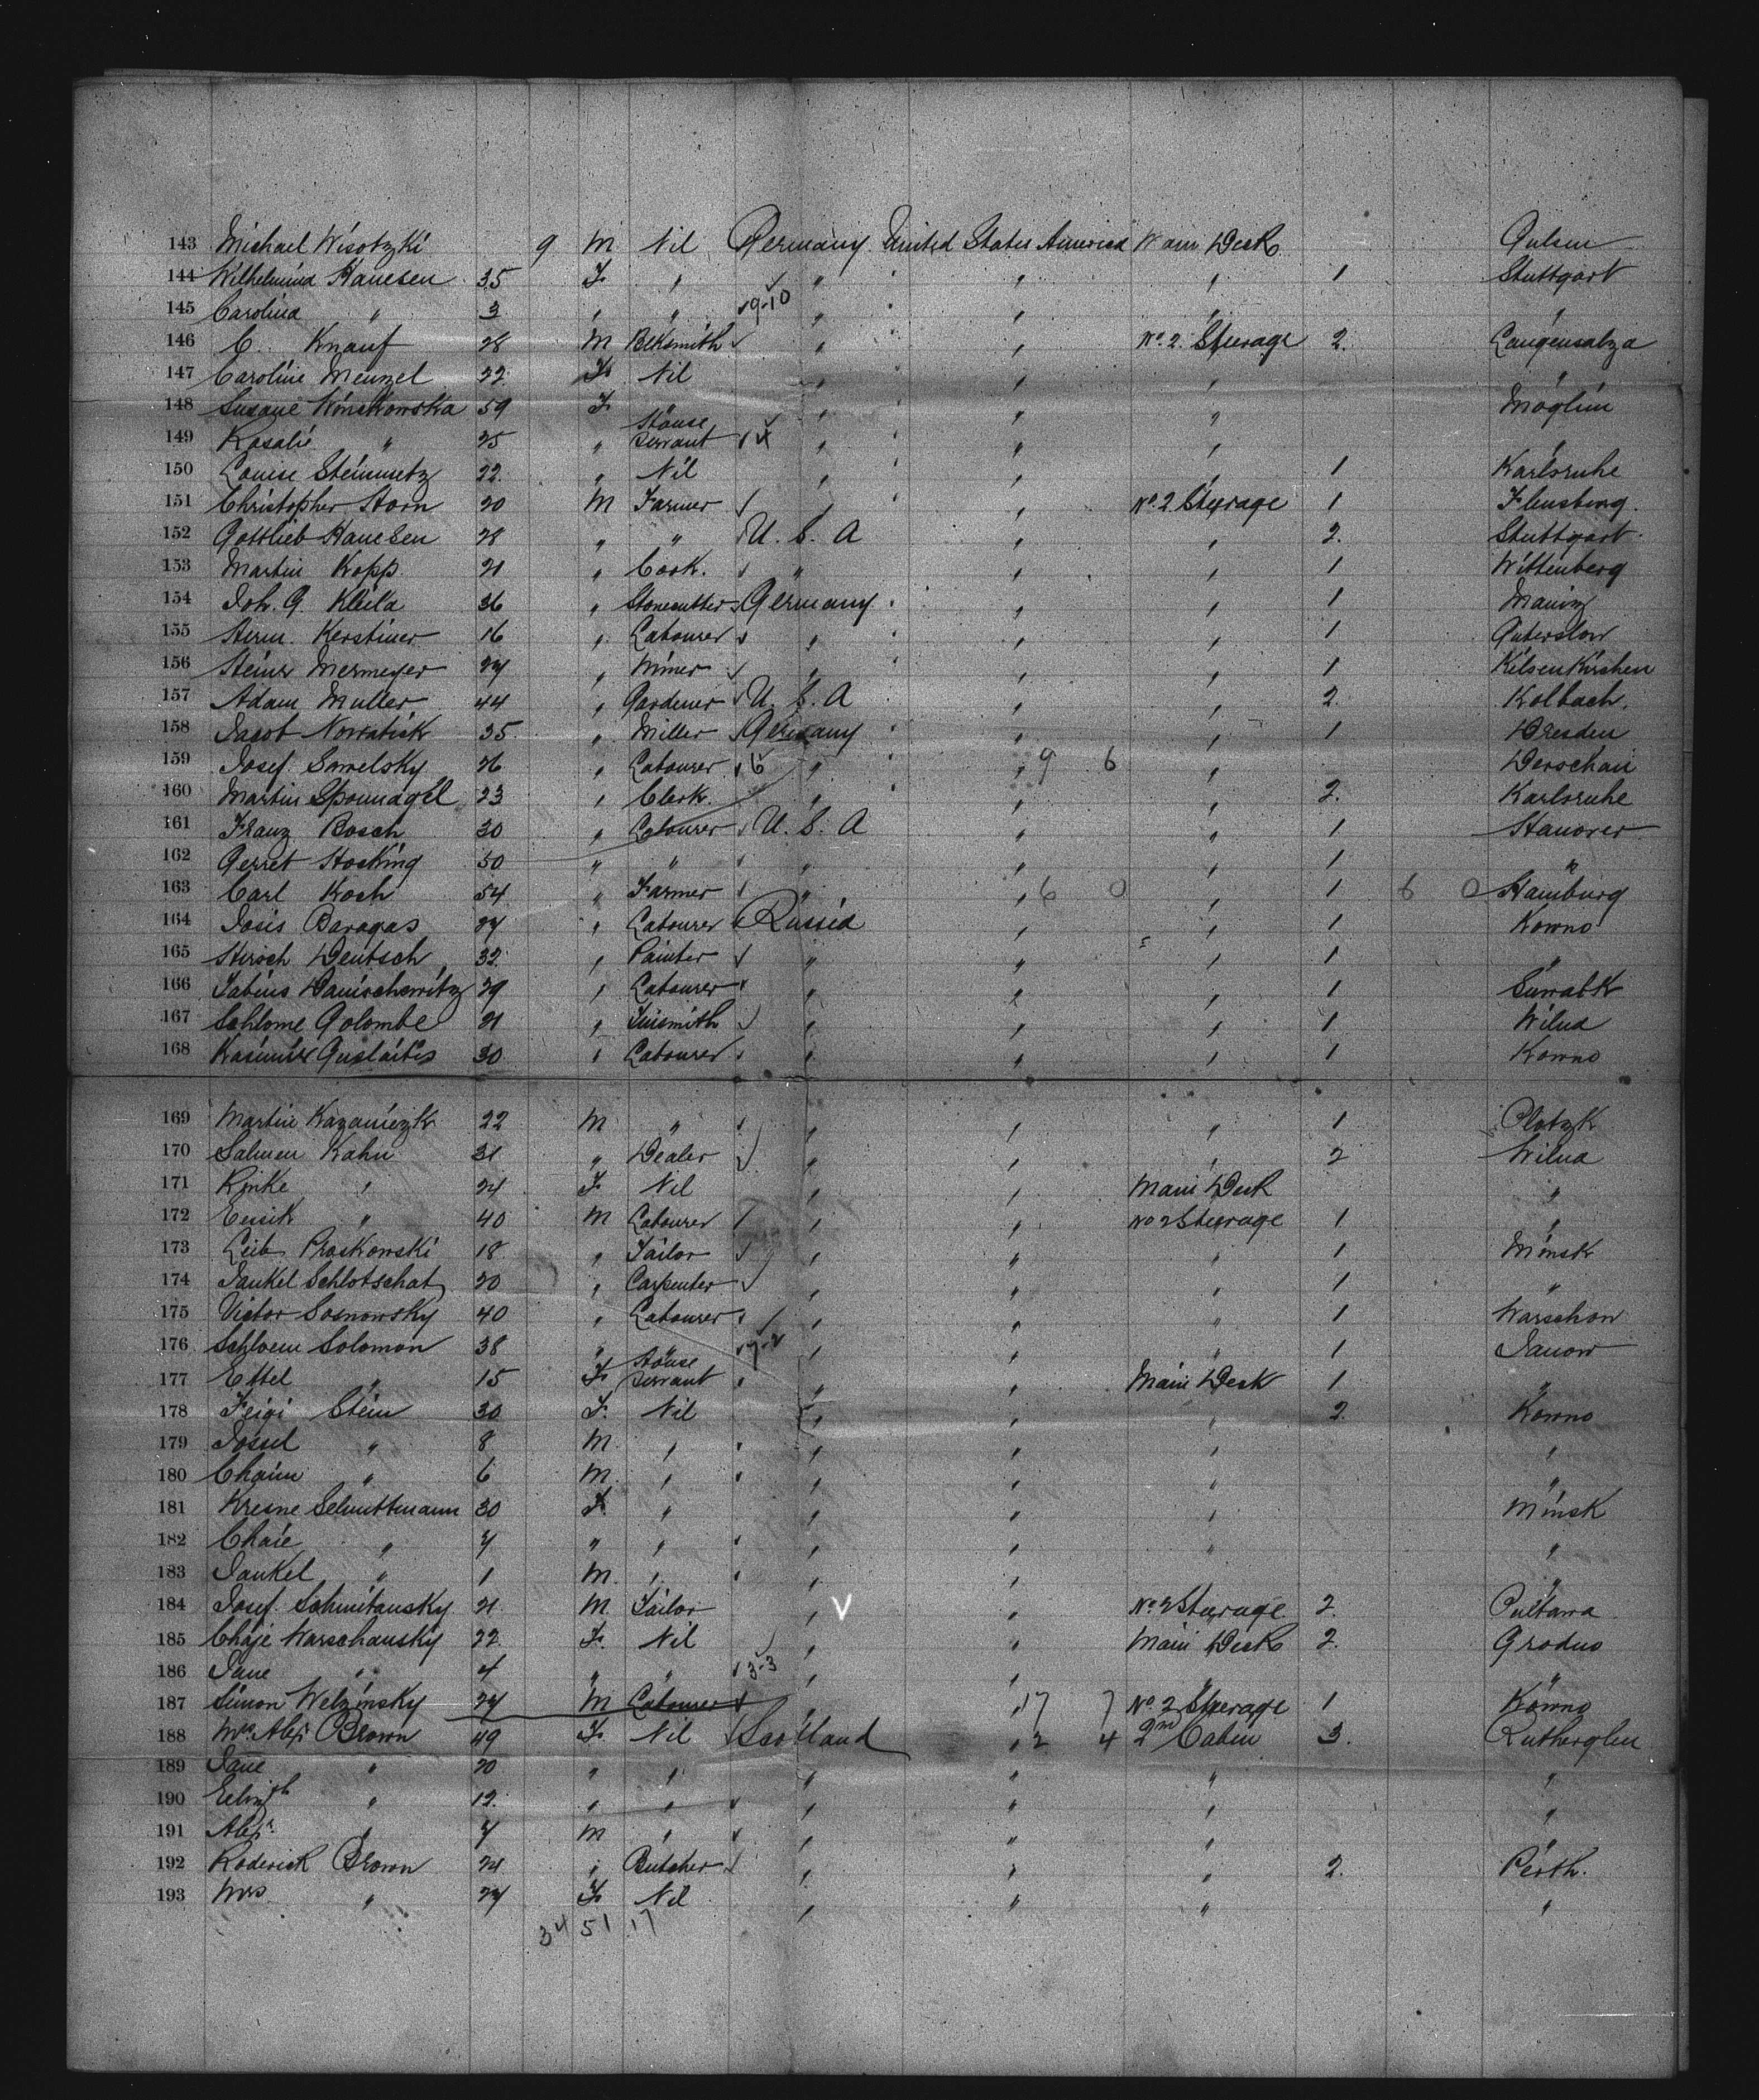 143 Michael Wisotzki 9 M Nil Germany United States America Main Deck Culsen
144 Wilhelmina Hanesen 35 F " " " " 1 Stuttgart
145 Carolina " 3 " " 9-10 " " " "
146 C. Knauf 28 M Blksmith " " No. 2 Steerage 2. Langensalza
147 Caroline Menzel 22 F Nil " " " "
148 Susane Winskowska 59 F " " " " Moglin
149 Rosalie " 25 " House Servant 4 " " " "
150 Louise Steinmetz 22 " Nil " " " 1 Karlsruhe
151 Christopher Horn 20 M Farmer " " No. 2 Steerage 1 Flensburg.
152 Gottlieb Hanesen 28 " " U. S. A " " 2. Stuttgart.
153 Martin Kopp. 21 " Cook. " " " 1 Wittenberg
154 Joh. G. Kleila 36 " Stonecutter Germany " " 1 Mainz
155 Herm. Kerstiner 16 " Labourer " " " 1 Guterslow
156 Heinr Mermeyer 27 " Miner " " " 1 Kelsenkirchen
157 Adam Muller 44 " Gardener U. S. A " " 2. Kolbach.
158 Jacob Nowatick 35 " Miller Germany " " 1 Dresden
159 Josef Sawelsky 26 " Labourer 6 " " 9 6 " Derschau
160 Martin Sponnagel 23 " Clerk. " " " 2. Karlsruhe
161 Franz Bosch 30 " Labourer U. S. A " " 1 Hanover
162 Gerret Hocking 50 " " " " " 1 "
163 Carl Koch 54 " Farmer " " 6 0 " 1 6 0 Hamburg
164 Josis Baragas 27 " Labourer Russia " " 1 Kowno
165 Hirsch Deutsch 32 " Painter " " " 1 "
166 Tabius Danischewitz 29 " Labourer " " " 1 Suwalk
167 Schlome Golombe 21 " Tinsmith " " " 1 Wilna
168 Kasimir Guslaitis 30 " Labourer " " " 1 Kowno
169 Martin Kazaniezik 22 M " " " " 1 Plotzk
170 Salmen Kahn 31 " Dealer " " " 2 Wilna
171 Rinke " 24 F Nil " " Main Deck "
172 Ensik " 40 M Labourer " " No 2 Steerage 1 "
173 Leib Proskowski 18 " Tailor " " " 1 Minsk
174 Jankel Schlotschat 20 " Carpenter " " " 1 "
175 Victor Sosnowsky 40 " Labourer " " " 1 Warschow
176 Schloem Solomon 38 " " 7-2 " " " 1 Janow
177 Ettel " 15 F House Servant " " Main Deck 1 "
178 Feigi Stein 30 F. Nil " " " 2. Kowno
179 Jossel " 8 M " " " " "
180 Chaim " 6 M " " " " "
181 Kresne Selmittmann 30 F " " " " Minsk
182 Chaie " 7 " " " " " "
183 Jankel " 1 M. " " " "
184 Josef Schmitansky 21 M. Tailor " V " No. 2 Steerage 2. Pultawa
185 Chaje Warschausky 22 F. Nil " " Main Deck 2. Grodno
186 Jane " 4 " " 3-3 " " "
187 Simon Welzinsky 27 M Labourer " " 17 7 No. 2 Steerage 1 Kowno
188 Mrs. Alexr Brown 49 F Nil Scotland " 2 4 2nd Cabin 3. Rutherglen
189 Jane " 20 " " " " " "
190 Elizth " 12 " " " " " "
191 Alexr. " 7 M " " " " "
192 Roderick Brown 24 " Butcher " " " 2. Perth.
193 Mrs " 27 F Nil " " " "
34 51 17